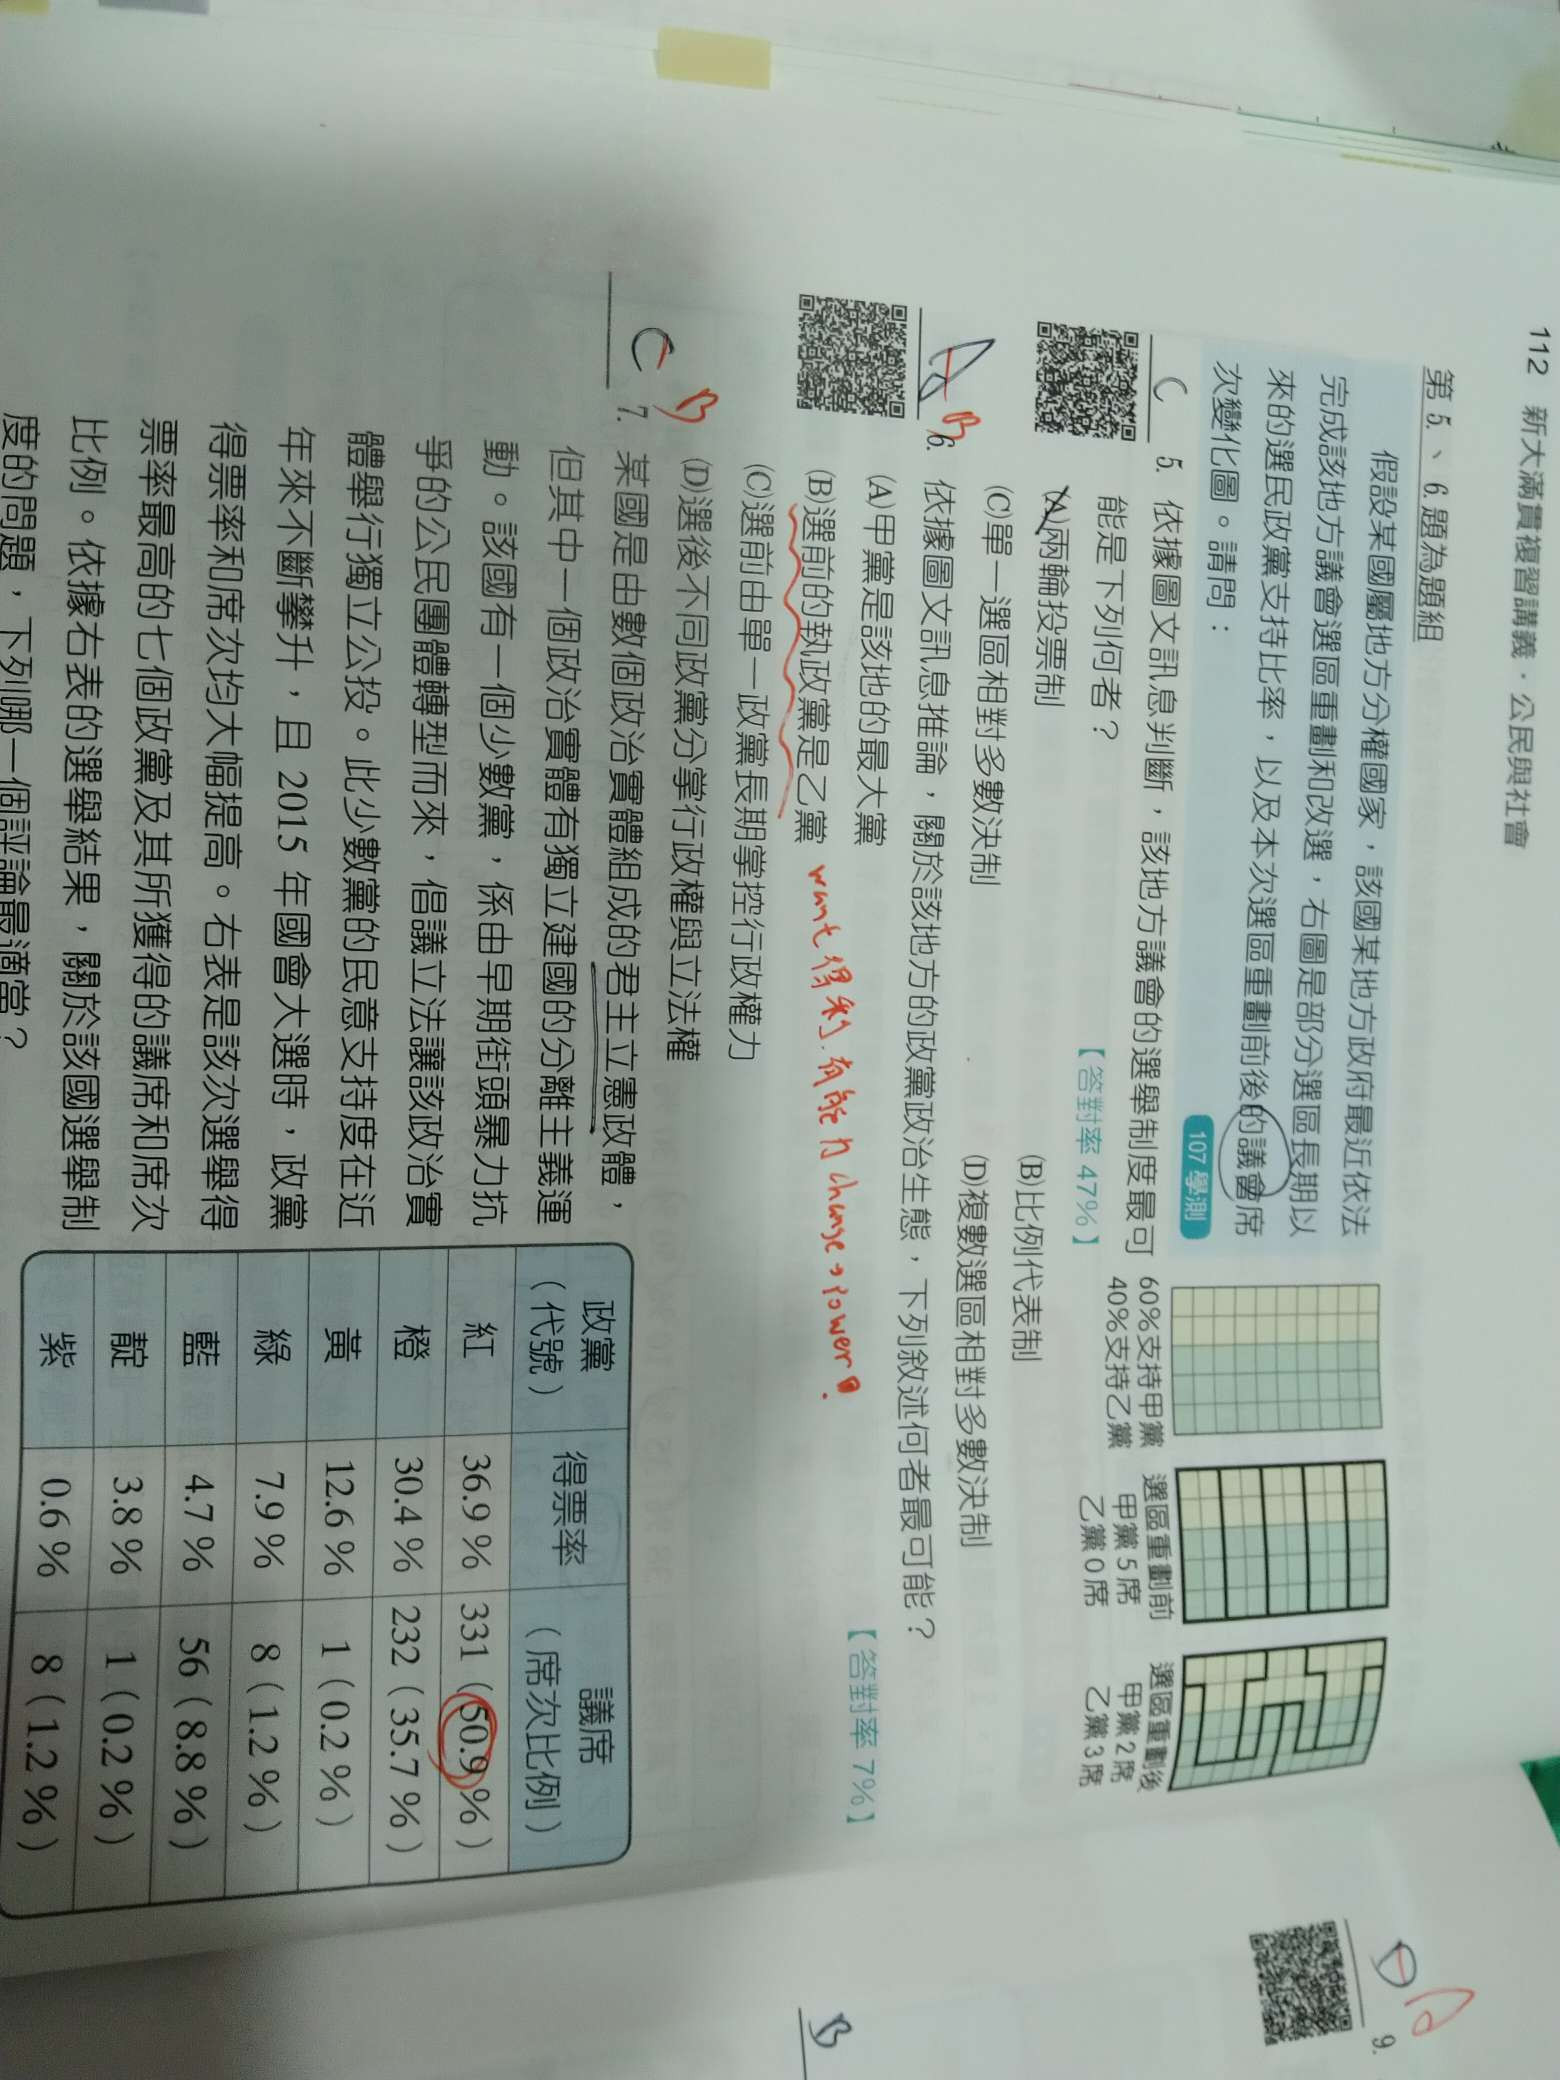 112 新大滿貫複習講義．公民與社會
第 5、6 題為題組
假設某國屬地方分權國家，該國某地方政府最近依法
完成該地方議會選區重劃和改選，右圖是部分選區長期以
來的選民政黨支持比率，以及本次選區重劃前後的議會席
次變化圖。請問：
107 學測
60%支持甲黨
40%支持乙黨
選區重劃前
甲黨 5 席
乙黨 0 席
選區重劃後
甲黨 2 席
乙黨 3 席
C
5. 依據圖文訊息判斷，該地方議會的選舉制度最可
能是下列何者？
【答對率 47%】
(A)兩輪投票制
(B)比例代表制
(C)單一選區相對多數決制
(D)複數選區相對多數決制
B
6. 依據圖文訊息推論，關於該地方的政黨政治生態，下列敘述何者最可能？
【答對率 7%】
(A)甲黨是該地的最大黨
(B)選前的執政黨是乙黨
want 得利，有能力 change → power
(C)選前由單一政黨長期掌控行政權力
(D)選後不同政黨分掌行政權與立法權
C B
7. 某國是由數個政治實體組成的君主立憲政體，
但其中一個政治實體有獨立建國的分離主義運
動。該國有一個少數黨，係由早期街頭暴力抗
爭的公民團體轉型而來，倡議立法讓該政治實
體舉行獨立公投。此少數黨的民意支持度在近
年來不斷攀升，且 2015 年國會大選時，政黨
得票率和席次均大幅提高。右表是該次選舉得
票率最高的七個政黨及其所獲得的議席和席次
比例。依據右表的選舉結果，關於該國選舉制
度的問題，下列哪一個評論最適當？
政黨（代號） 得票率 議席（席次比例）
紅 36.9 % 331（50.9 %）
橙 30.4 % 232（35.7 %）
黃 12.6 % 1（0.2 %）
綠 7.9 % 8（1.2 %）
藍 4.7 % 56（8.8 %）
靛 3.8 % 1（0.2 %）
紫 0.6 % 8（1.2 %）
D A
9.
B